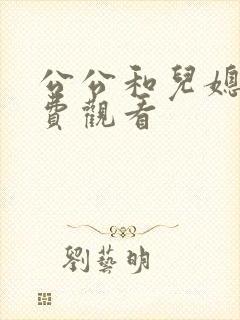 公公和兒媳
費觀看
劉藝明